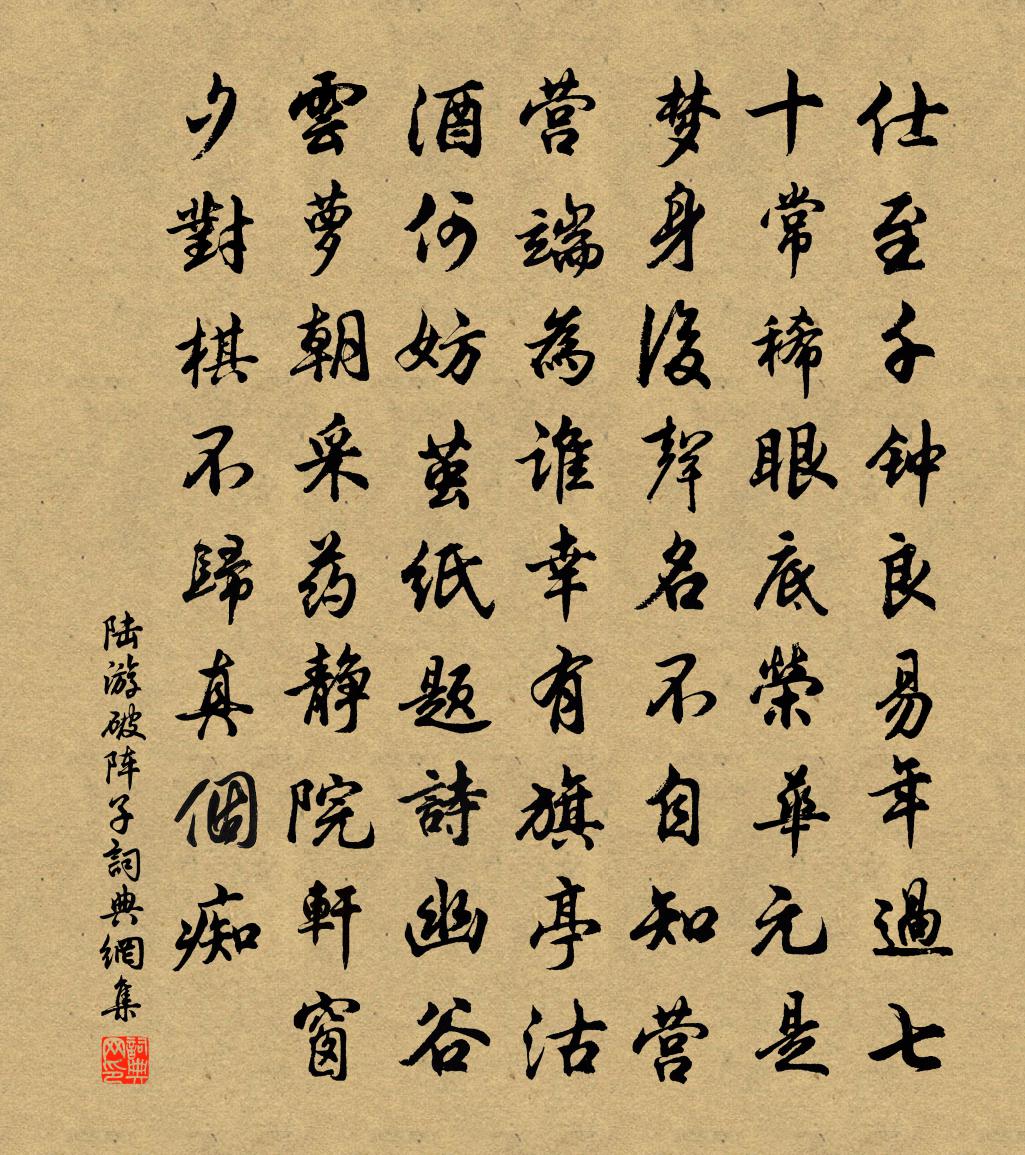 仕至千钟良易年過七
十常稀眼底榮華元是
梦身後聲名不自知营
营端為誰幸有旗亭沽
酒何妨茧纸题詩幽谷
雲萝朝采药静院軒窗
夕對棋不歸真個痴
陆游破阵子詞典網集
詞典网印